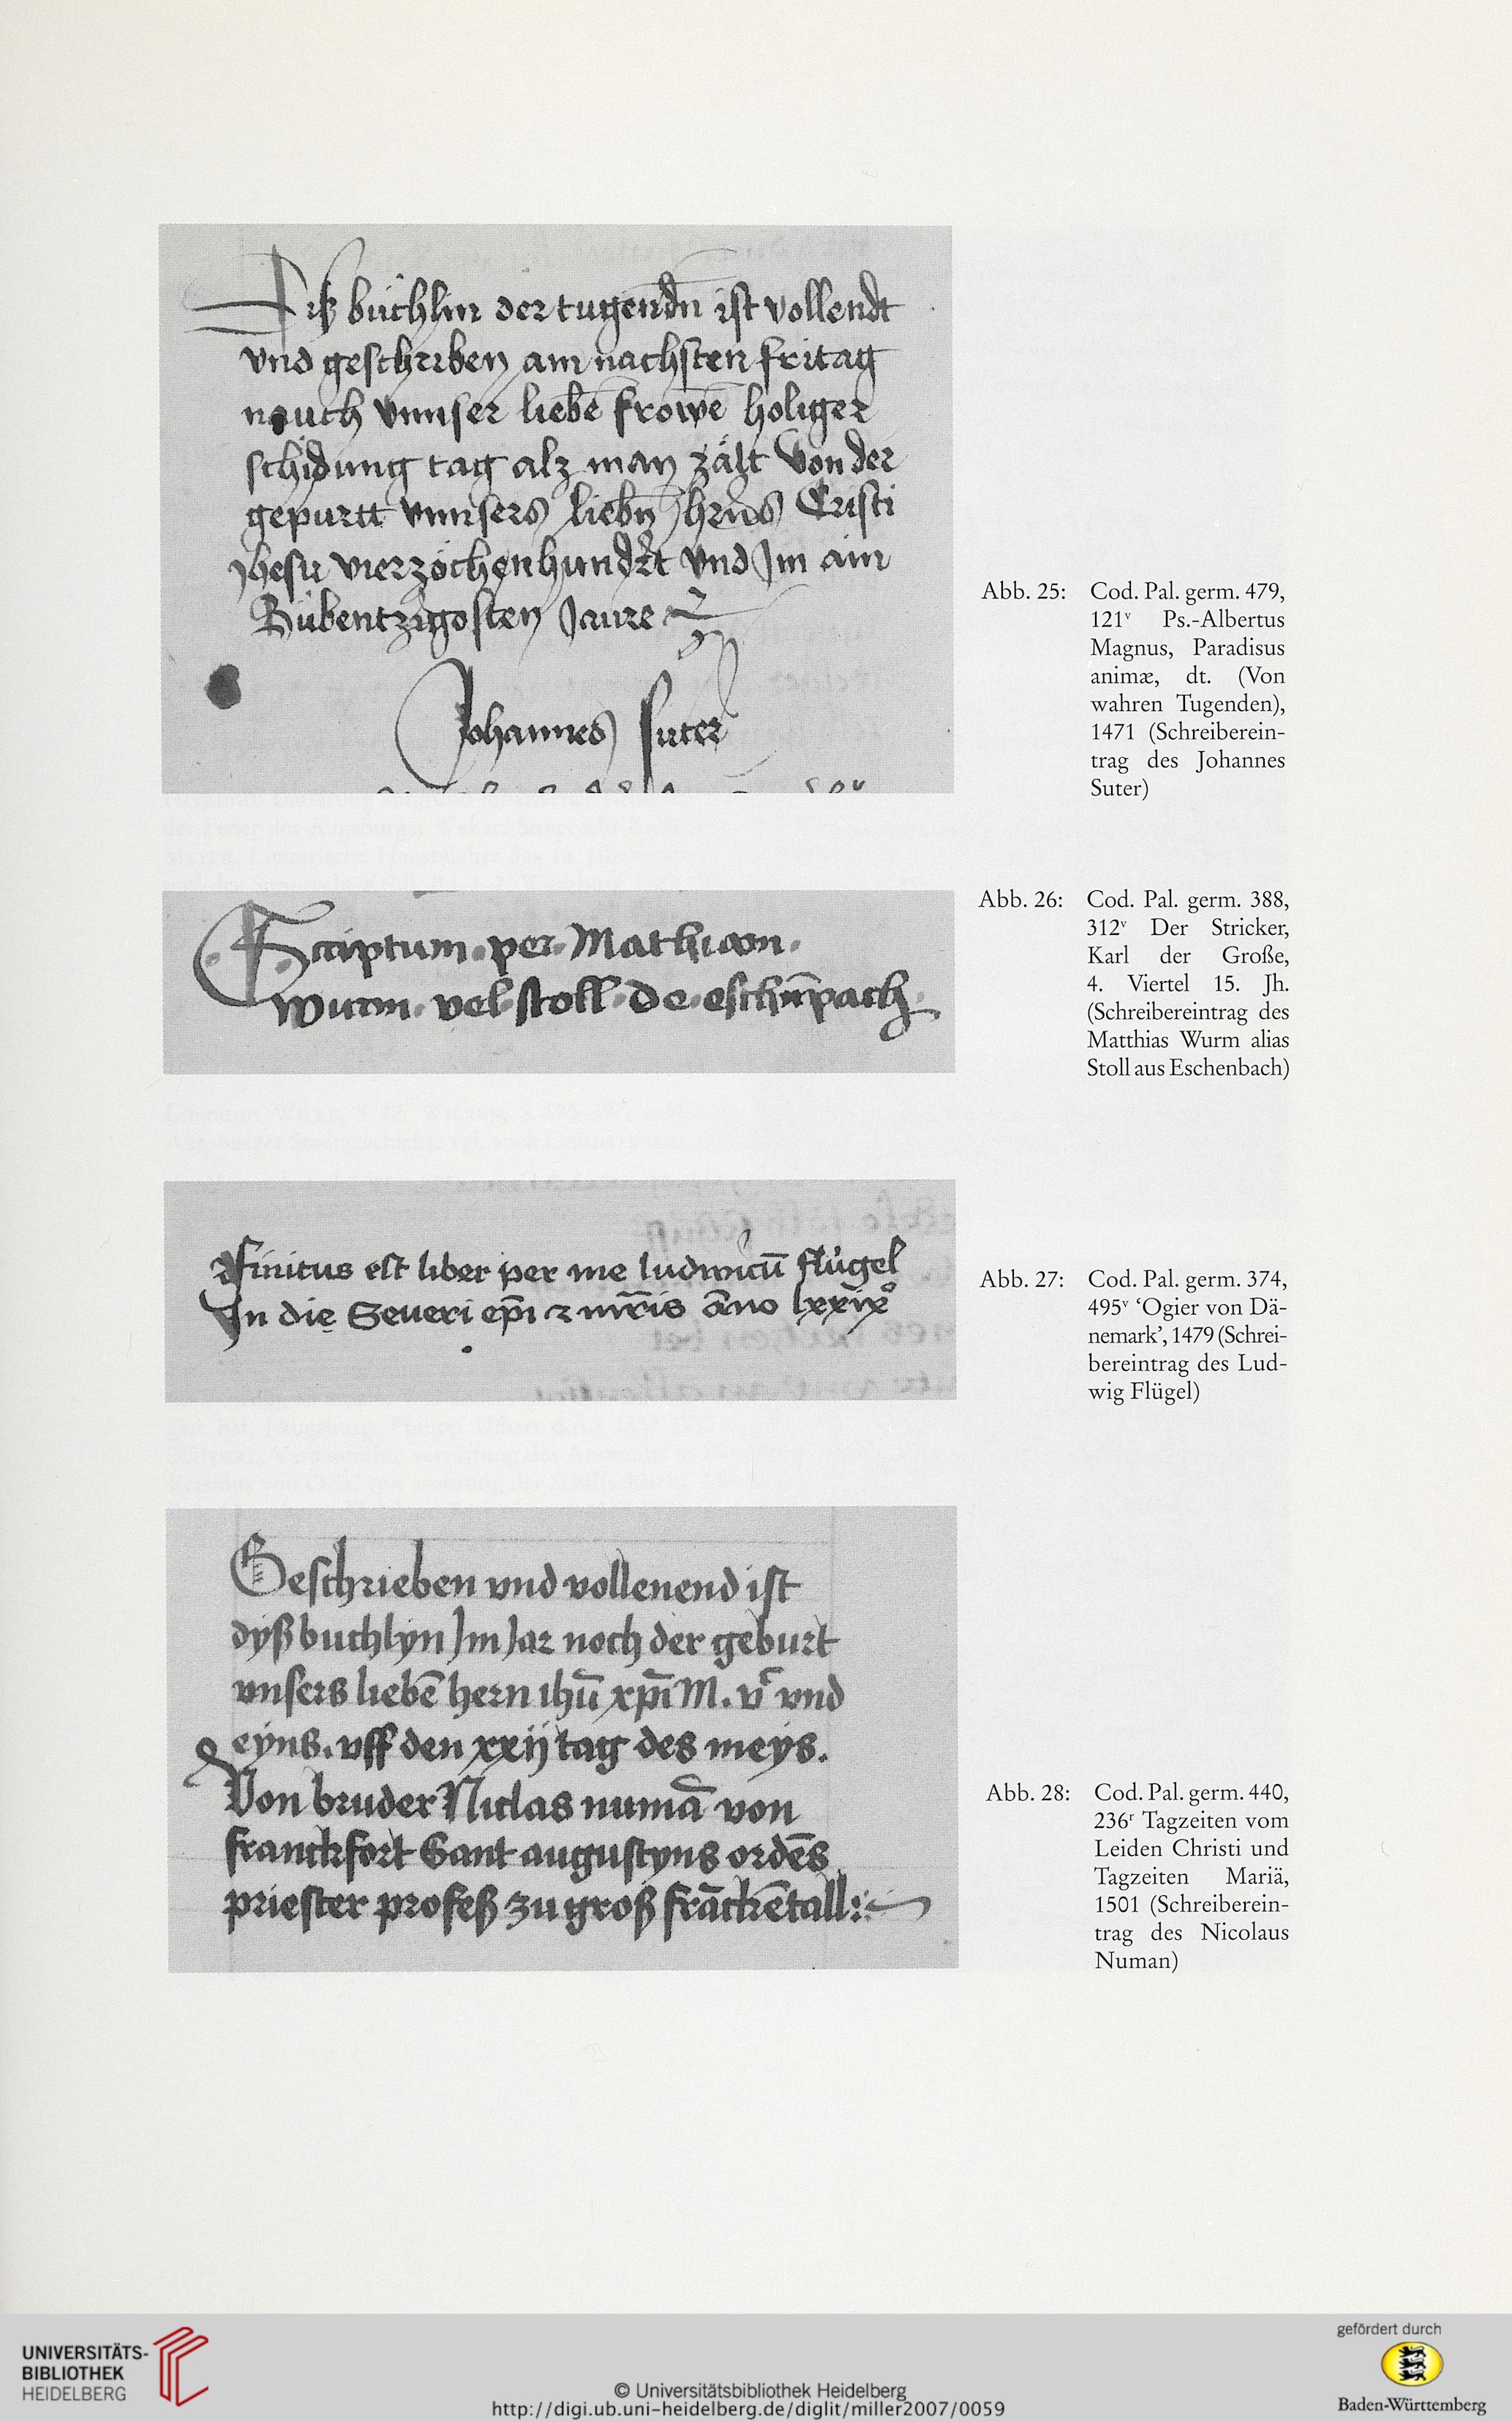 Diß büchlin der tugendn̄ ist vollendt
vnd geschriben am nachsten fritag
nauch vnnser liebē frowē holiger
schidung tag alz man zält von der
gepurtt vnnsers liebn̄ hr̄ns Cristi
Jhesu vierzöchenhundrt vnd Jm ain
Sübentzigosten Jaure
Johannes suter
Abb. 25: Cod. Pal. germ. 479,
121v Ps.-Albertus
Magnus, Paradisus
animæ, dt. (Von
wahren Tugenden),
1471 (Schreiberein-
trag des Johannes
Suter)
Scriptum · per · Mathiam ·
wurm · vel · stoll · de · eschn̄pach
Abb. 26: Cod. Pal. germ. 388,
312v Der Stricker,
Karl der Große,
4. Viertel 15. Jh.
(Schreibereintrag des
Matthias Wurm alias
Stoll aus Eschenbach)
Finitus est liber per me ludwicū flügel
In die Seueri ep̄i ⁊ mr̄is āno lxxix°
Abb. 27: Cod. Pal. germ. 374,
495v ‘Ogier von Dä-
nemark’, 1479 (Schrei-
bereintrag des Lud-
wig Flügel)
Geschrieben vnd vollenend ist
dyß buchlyn Jm Jar noch der geburt
vnsers liebē hern ihū xp̄i M. vc vnd
eyns. vff den xxij tag des meys.
Von bruder Niclas numā von
franckfort Sant augustyns ordēs
priester profeß zu groß frāckētall:
Abb. 28: Cod. Pal. germ. 440,
236r Tagzeiten vom
Leiden Christi und
Tagzeiten Mariä,
1501 (Schreiberein-
trag des Nicolaus
Numan)
UNIVERSITÄTS-
BIBLIOTHEK
HEIDELBERG
© Universitätsbibliothek Heidelberg
http://digi.ub.uni-heidelberg.de/diglit/miller2007/0059
gefördert durch
Baden-Württemberg